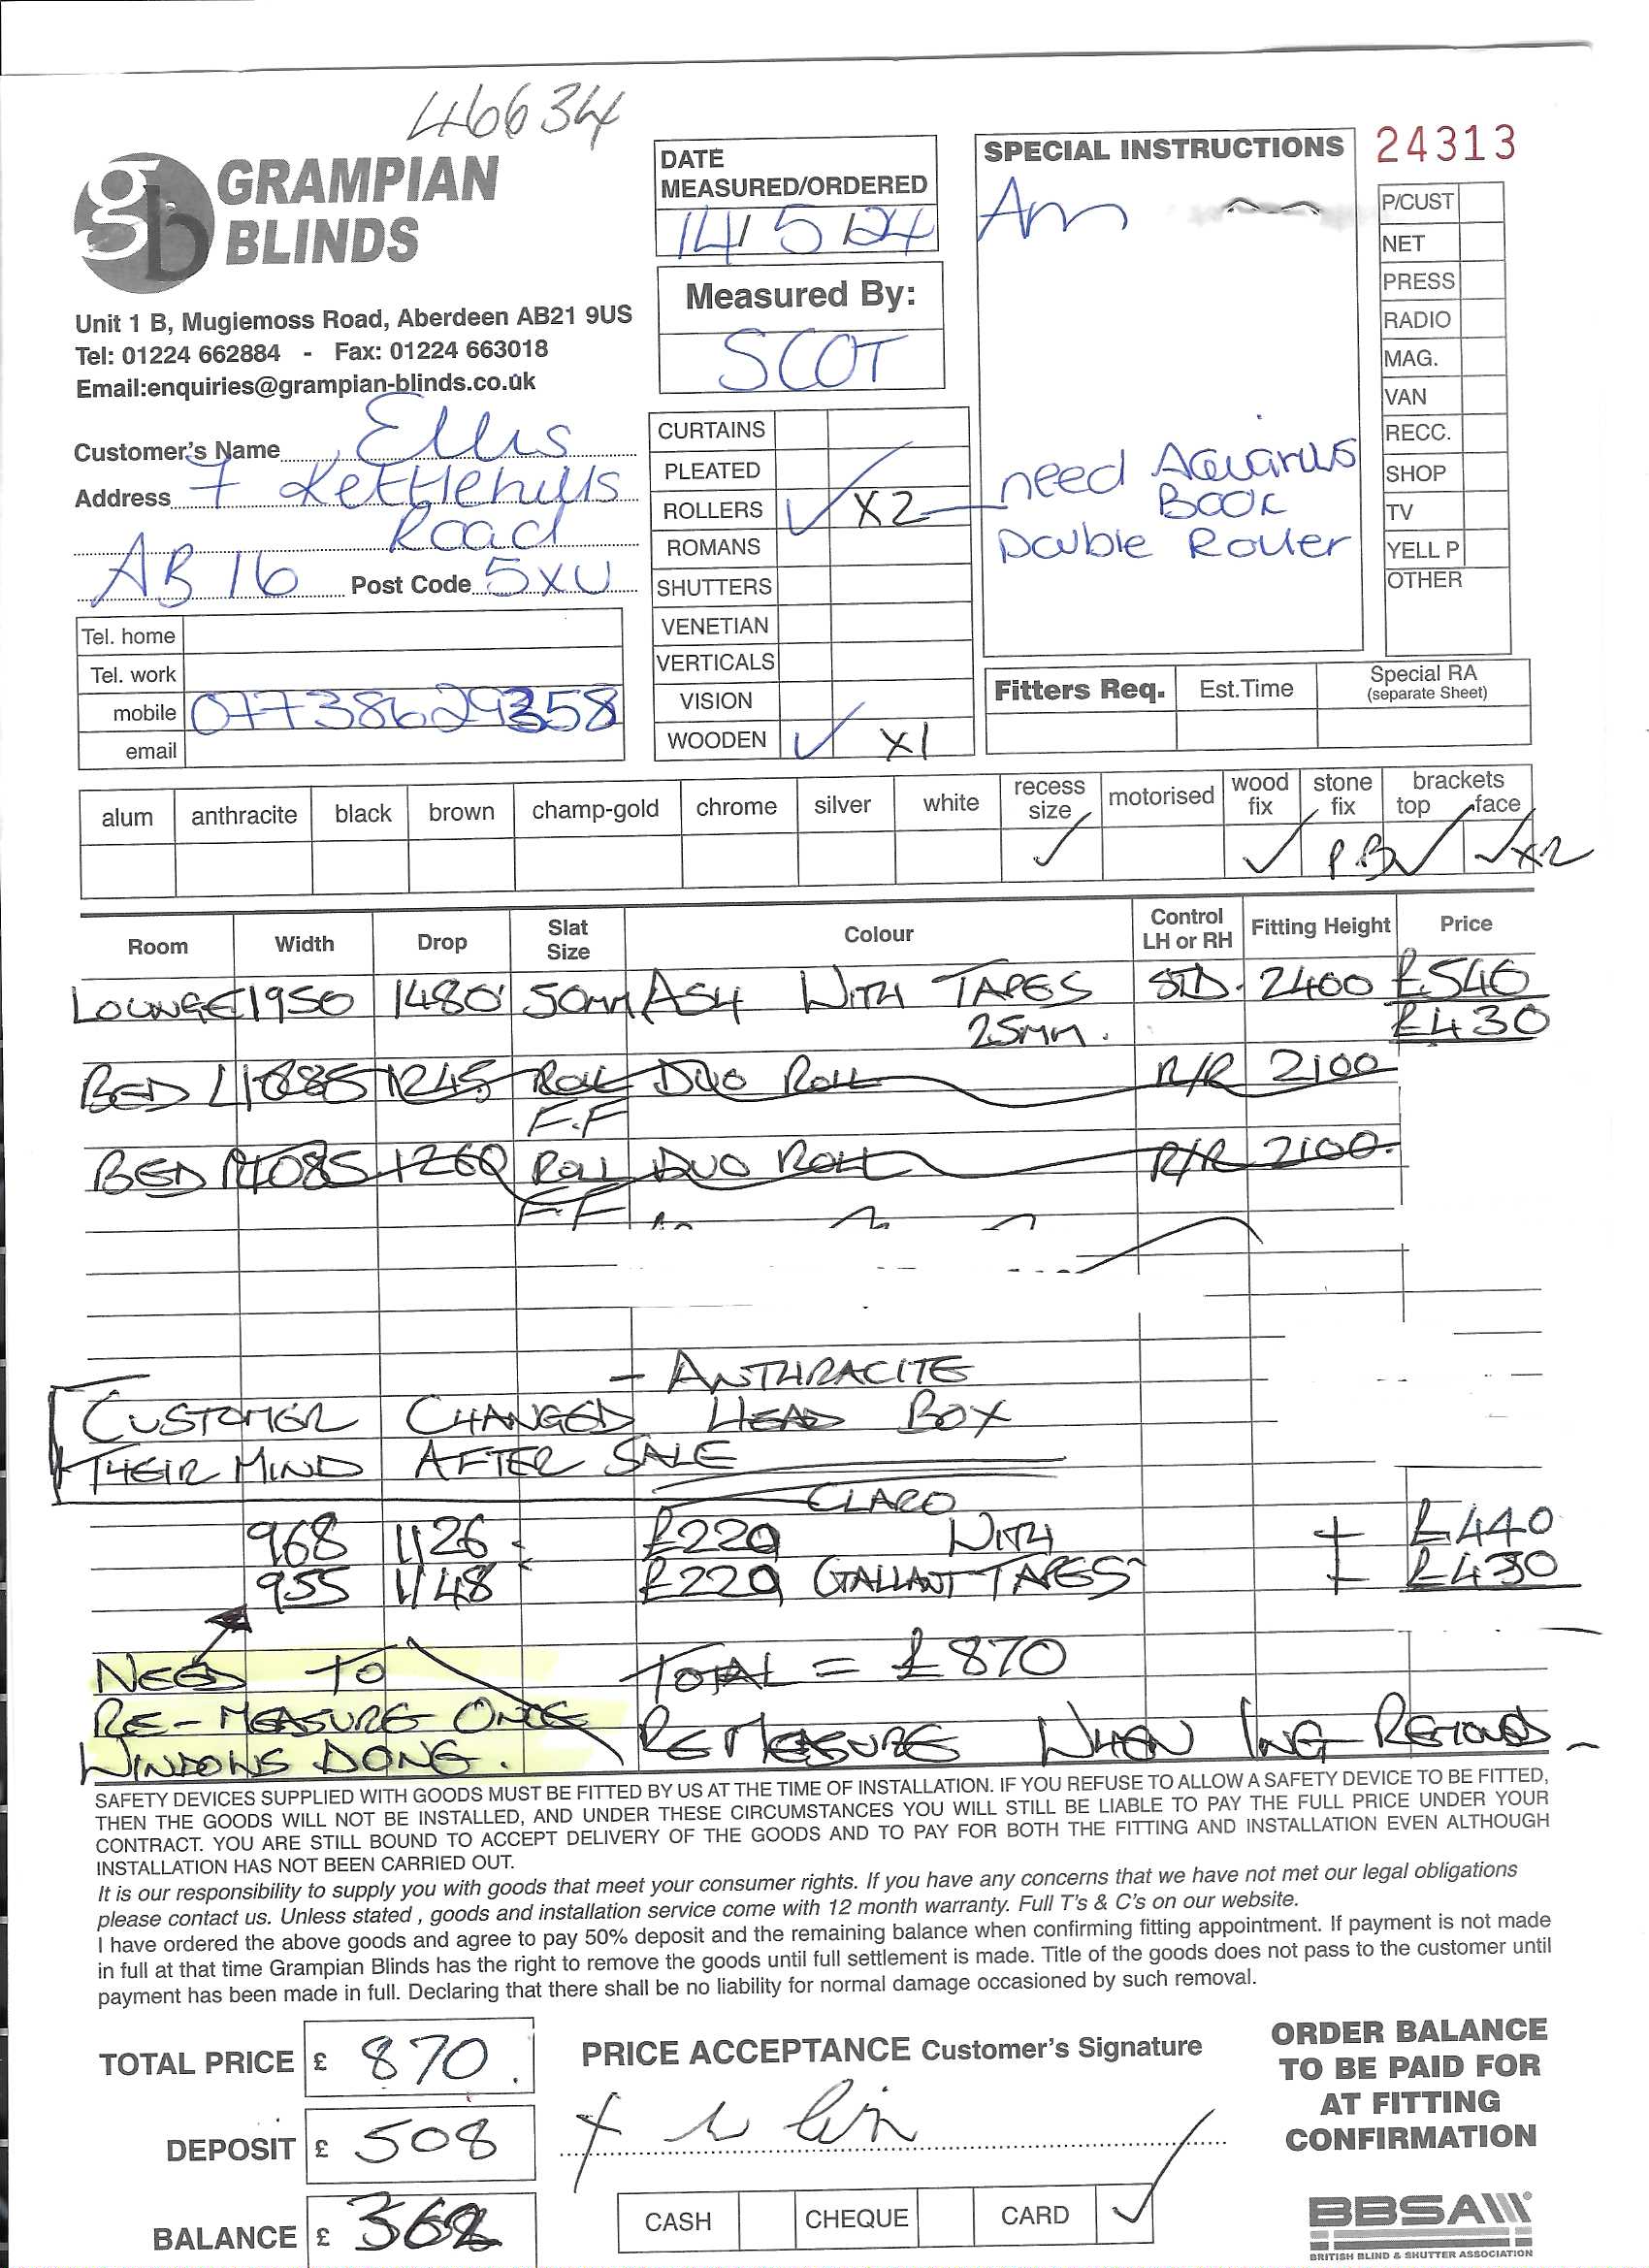 46634
GRAMPIAN
BLINDS
Unit 1 B, Mugiemoss Road, Aberdeen AB21 9US
Tel: 01224 662884 - Fax: 01224 663018
Email:enquiries@grampian-blinds.co.uk
DATE
MEASURED/ORDERED
14/5/24
Measured By:
SCOT
SPECIAL INSTRUCTIONS
need Aquarius
BOOK
Double Roller
24313
P/CUST
NET
PRESS
RADIO
MAG.
VAN
RECC.
SHOP
TV
YELL P
OTHER
Customer's Name Ellis
Address 7 Kettlehills
Road
AB16 Post Code 5XU
Tel. home
Tel. work
mobile 07738629358
email
CURTAINS
PLEATED
ROLLERS ✓ X2
ROMANS
SHUTTERS
VENETIAN
VERTICALS
VISION
WOODEN ✓ X1
Fitters Req. Est.Time Special RA
(separate Sheet)
alum anthracite black brown champ-gold chrome silver white recess size motorised wood fix stone fix brackets top face
✓ ✓ PB ✓ ✓ X2
Room Width Drop Slat Size Colour Control LH or RH Fitting Height Price
LOUNGE 1950 1480 50mm ASH WITH TAPES STD. 2400 £540
25mm. £430
BED 1245 ROLL DUO ROLL R/R 2100
F.F
BED 1260 ROLL DUO ROLL R/R 2100
F.F
- ANTHRACITE
CUSTOMER CHANGED HEAD BOX
THEIR MIND AFTER SALE
CLARO
968 1126 £220 WITH + £440
955 1148 £220 GALLANT TAPES + £430
NEED TO TOTAL = £870
RE-MEASURE ONCE
WINDOWS DONE.
REMEASURE WHEN REMOVED
SAFETY DEVICES SUPPLIED WITH GOODS MUST BE FITTED BY US AT THE TIME OF INSTALLATION. IF YOU REFUSE TO ALLOW A SAFETY DEVICE TO BE FITTED,
THEN THE GOODS WILL NOT BE INSTALLED, AND UNDER THESE CIRCUMSTANCES YOU WILL STILL BE LIABLE TO PAY THE FULL PRICE UNDER YOUR
CONTRACT. YOU ARE STILL BOUND TO ACCEPT DELIVERY OF THE GOODS AND TO PAY FOR BOTH THE FITTING AND INSTALLATION EVEN ALTHOUGH
INSTALLATION HAS NOT BEEN CARRIED OUT.
It is our responsibility to supply you with goods that meet your consumer rights. If you have any concerns that we have not met our legal obligations
please contact us. Unless stated , goods and installation service come with 12 month warranty. Full T's & C's on our website.
I have ordered the above goods and agree to pay 50% deposit and the remaining balance when confirming fitting appointment. If payment is not made
in full at that time Grampian Blinds has the right to remove the goods until full settlement is made. Title of the goods does not pass to the customer until
payment has been made in full. Declaring that there shall be no liability for normal damage occasioned by such removal.
TOTAL PRICE £ 870
DEPOSIT £ 508
BALANCE £ 362
PRICE ACCEPTANCE Customer's Signature
CASH CHEQUE CARD ✓
ORDER BALANCE
TO BE PAID FOR
AT FITTING
CONFIRMATION
BBSA
BRITISH BLIND & SHUTTER ASSOCIATION